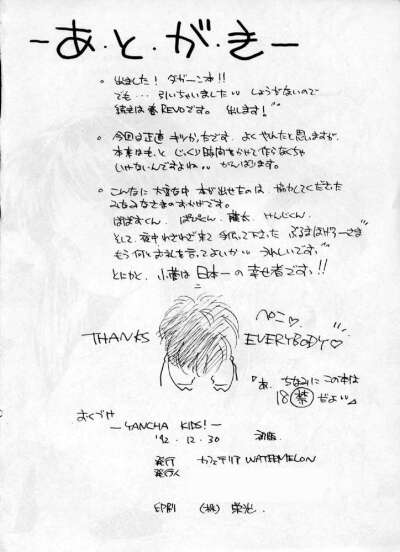 ーあ・と・が・きー
。出ました！ ダガーン本!!
でも… 引いちゃいました‥ しょうがないので
続きは春REVOです。 出します！
。今回は正直 キツかったです。よくやれたと思しますが、
本来はもっと じっくり時間をかけて作らなくちゃ
いけないんですよね‥ がんばります。
。こんなに大変な中 本が出せたのは、協力してくださった
みなみなさまのおかげです。
ぽぽすくん、 けんじくん、
そして、夜中わざわざ来て 手伝って下さった さま
もう何とお礼を言ってよいか‥ うれしいです。
とにかく、小菅は 日本一の幸せ者です!!
ぺこ♡
THANKS EVERYBODY♡
『あ、ちなみに この本は
18禁だよ‥』
おくづけ
ーYANCHA KIDS!ー
'92.12.30
発行 カフェテリア WATERMELON
発行人
印刷 (株) 栄光.